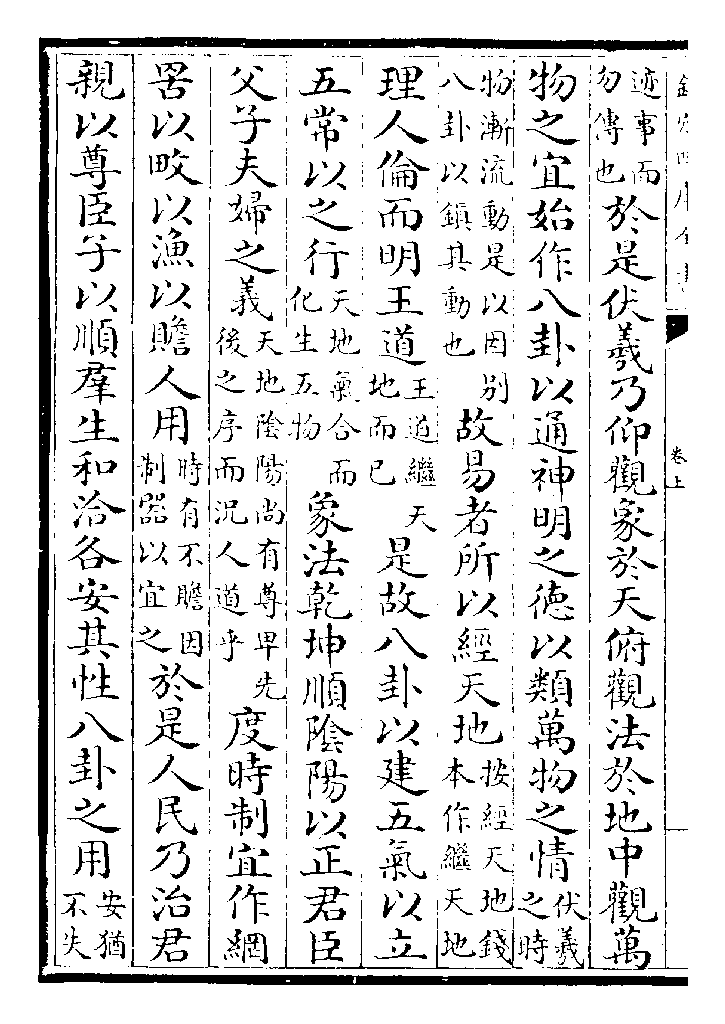 卷上
迹事而勿傳也於是伏羲乃仰觀象於天俯觀法於地中觀萬
物之宜始作八卦以通神明之德以類萬物之情伏羲之時
物漸流動是以因别八卦以鎮其動也故易者所以經天地按經天地錢本作繼天地
理人倫而明王道王道繼天地而已是故八卦以建五氣以立
五常以之行天地氣合而化生五物象法乾坤順陰陽以正君臣
父子夫婦之義天地陰陽尚有尊卑先後之序而況人道乎度時制宜作網
罟以畋以漁以贍人用時有不贍因制器以宜之於是人民乃治君
親以尊臣子以順羣生和洽各安其性八卦之用安猶不失